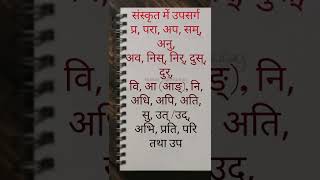 संस्कृत में उपसर्ग
प्र, परा, अप, सम्,
अनु,
अव, निस्, निर्, दुस्,
दुर्,
वि, आ (आङ्), नि,
अधि, अपि, अति,
सु, उत् /उद्,
अभि, प्रति, परि
तथा उप